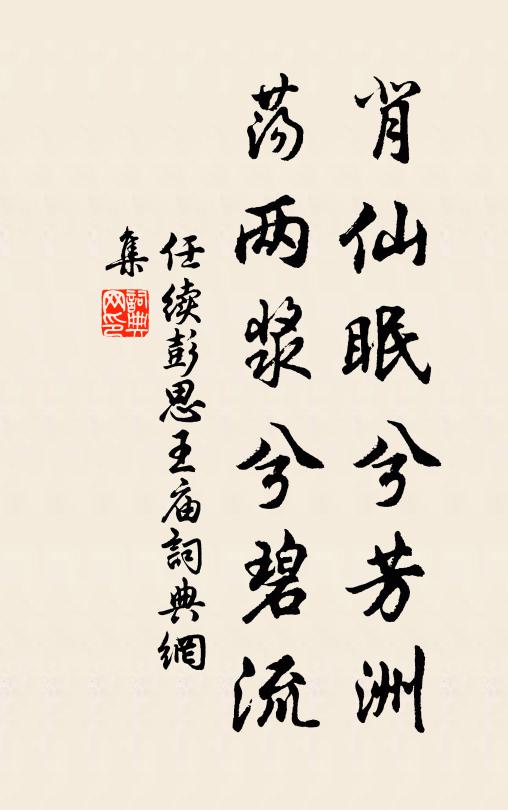 肖仙眠兮芳洲
荡两浆兮碧流
任续彭思王庙词典網
集
詞典
网印